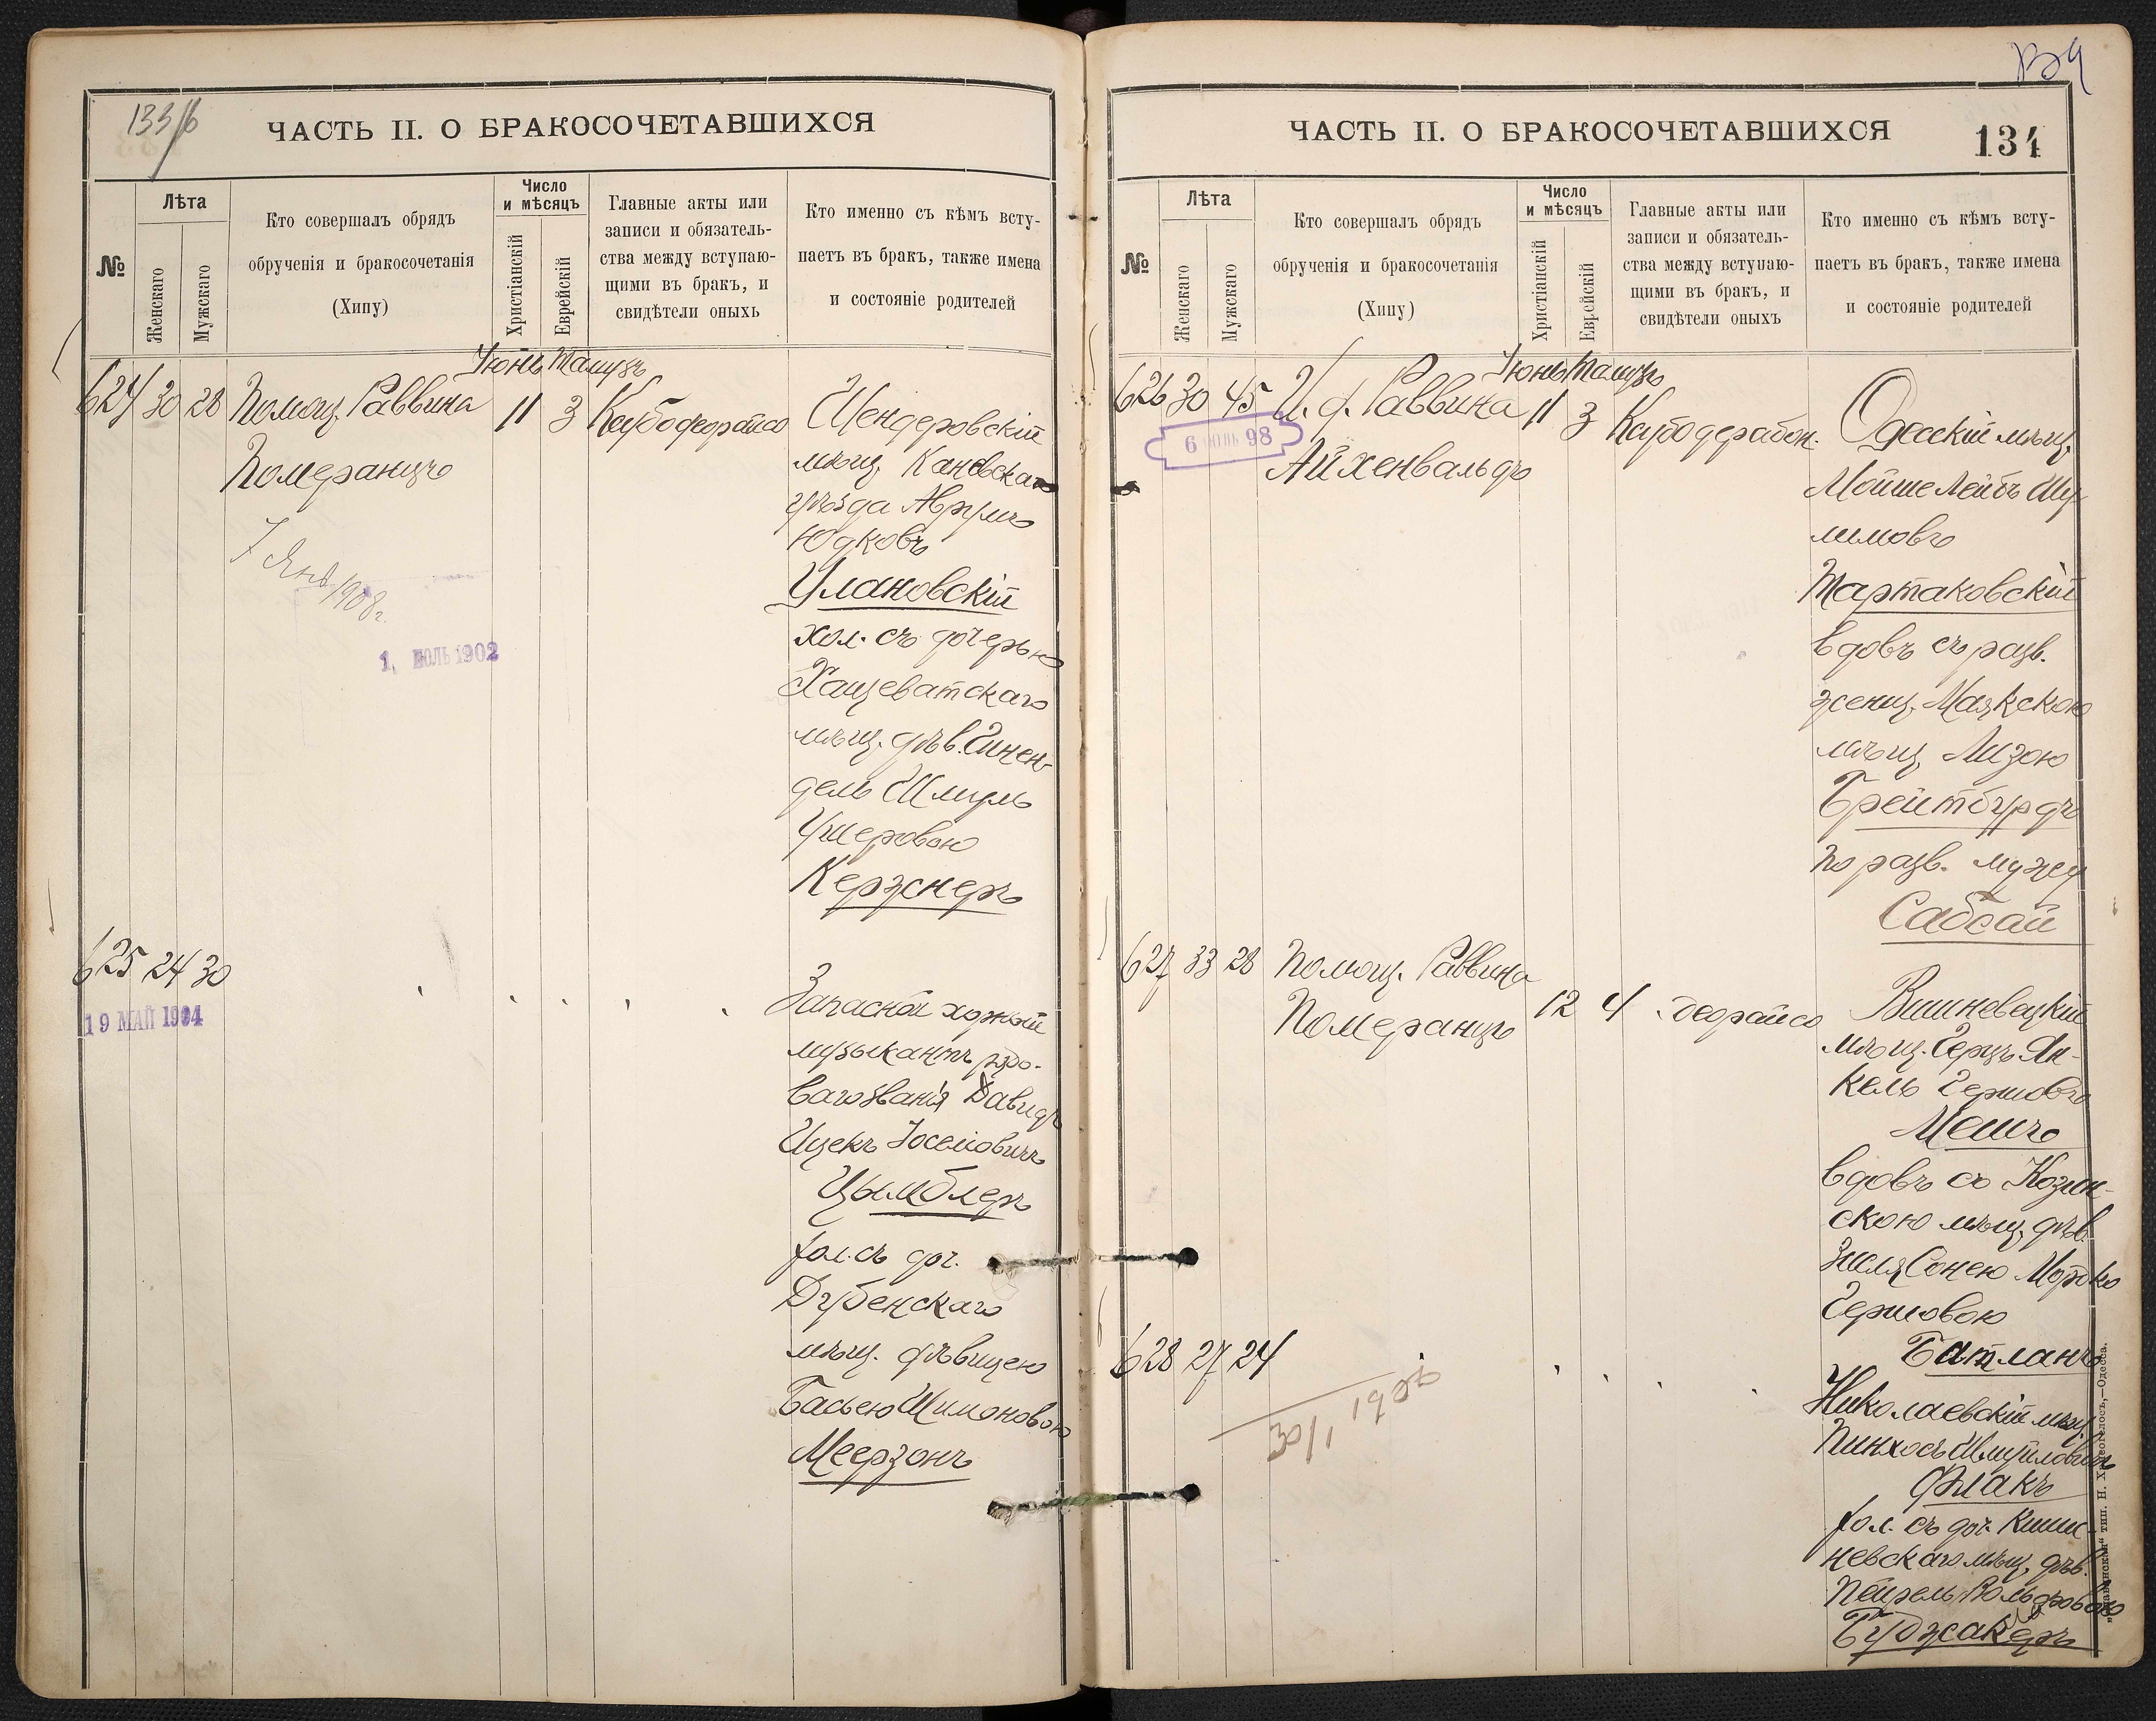 133/б
ЧАСТЬ II. О БРАКОСОЧЕТАВШИХСЯ
№
Лѣта
Женскаго
Мужскаго
Кто совершалъ обрядъ
обрученія и бракосочетанія
(Хипу)
Число
и мѣсяцъ
Христіанскій
Еврейскій
Главные акты или
записи и обязатель-
ства между вступаю-
щими въ бракъ, и
свидѣтели оныхъ
Кто именно съ кѣмъ всту-
паетъ въ бракъ, также имена
и состояніе родителей
Іюнь Тамузъ
624 30 28 Помощ. Раввина 11 3
Померанцъ
7 Янв 1908 г.
1 ІЮЛЬ 1902
Шендеровскій
мѣщ. Каневска
уѣзда Аврумъ
Юдковъ
Улановскій
хол. съ дочерью
Хащеватскаго
мѣщ. дѣв. Гинен-
дель Шмуль
Ушеровою
Керзнеръ
625 24 30
19 МАЙ 1904
Запасной хорный
музыкантъ рядо-
ваго званія Давидъ
Ицекъ Іосейовичъ
Цымблеръ
хол. съ доч.
Дубенскаго
мѣщ. дѣвицею
Басьею Шимоновою
Меерзонъ
ЧАСТЬ II. О БРАКОСОЧЕТАВШИХСЯ
134
№
Лѣта
Женскаго
Мужскаго
Кто совершалъ обрядъ
обрученія и бракосочетанія
(Хипу)
Число
и мѣсяцъ
Христіанскій
Еврейскій
Главные акты или
записи и обязатель-
ства между вступаю-
щими въ бракъ, и
свидѣтели оныхъ
Кто именно съ кѣмъ всту-
паетъ въ бракъ, также имена
и состояніе родителей
Іюнь Тамузъ
626 30 45 И. д. Раввина 11 3
6 ІЮНЬ 98
Айхенвальдъ
Одесскій мѣщ.
Мойше Лейбъ Шу-
лимовъ
Тартаковскій
вдовъ съ разв.
женщ. Маякскою
мѣщ. Лизою
Брейтбурдъ
по разв. мужу
Сабсай
627 33 28 Помощ. Раввина
Померанцъ 12 4 деорайсо
Вишневецкій
мѣщ. Герцъ Ян-
кель Гершовъ
Мешъ
вдовъ съ Козин-
скою мѣщ. дѣв.
Сонею Мордко
Гершовою
Батланъ
628 27 24
Николаевскій мѣщ.
Пинхосъ Шмуйловичъ
Флакъ
хол. съ доч. Киши-
невскаго мѣщ. дѣв.
Пейрель Вольфовою
Буджакеръ
„Славянская“ тип. Н. Хрисогелосъ,—Одесса.